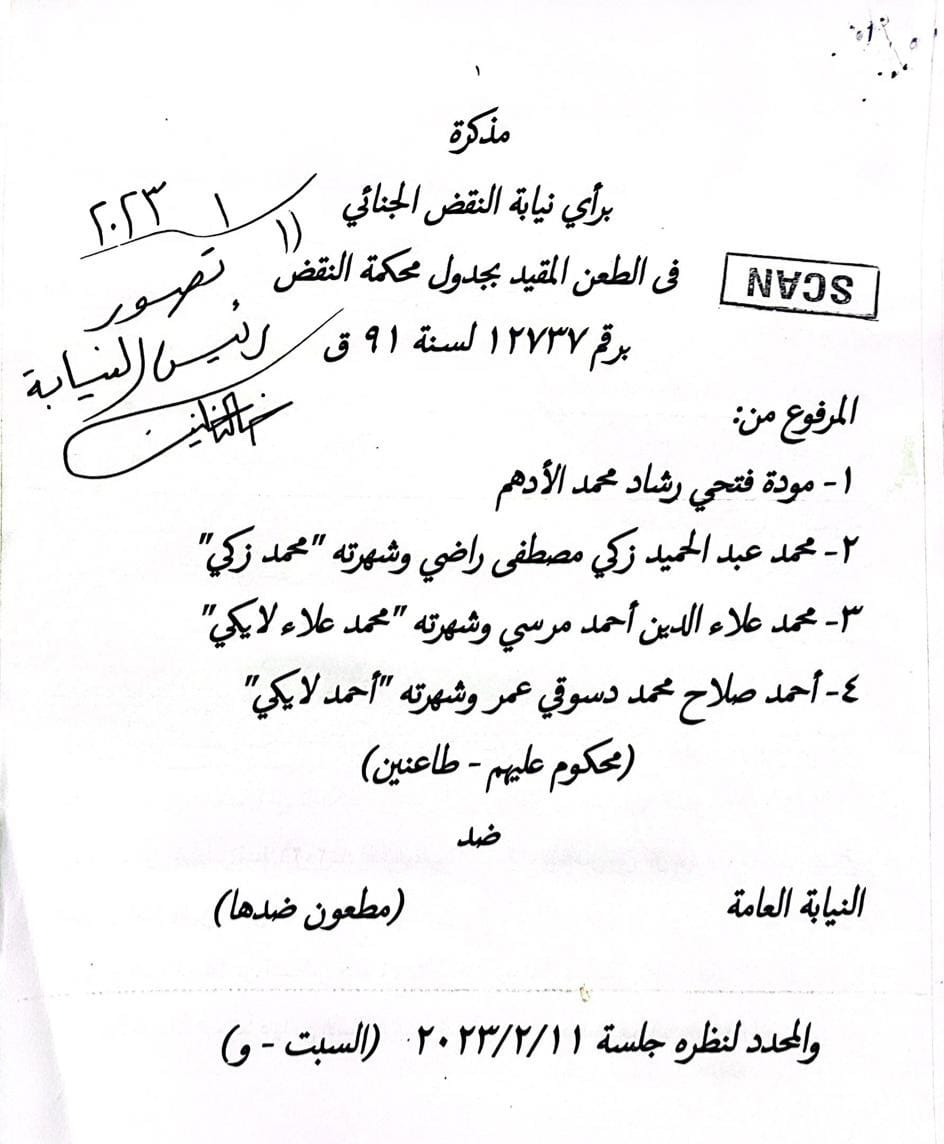 ١
مذكرة
برأي نيابة النقض الجنائي
فى الطعن المقيد بجدول محكمة النقض
برقم ١٢٧٣٧ لسنة ٩١ ق
١١ / ١ / ٢٠٢٣
تصور
رئيس النيابة
SCAN
المرفوع من:
١- مودة فتحي رشاد محمد الأدهم
٢- محمد عبد الحميد زكي مصطفى راضي وشهرته "محمد زكي"
٣- محمد علاء الدين أحمد مرسي وشهرته "محمد علاء لايكي"
٤- أحمد صلاح محمد دسوقي عمر وشهرته "أحمد لايكي"
(محكوم عليهم - طاعنين)
ضد
النيابة العامة (مطعون ضدها)
والمحدد لنظره جلسة ٢٠٢٣/٢/١١ (السبت - و)